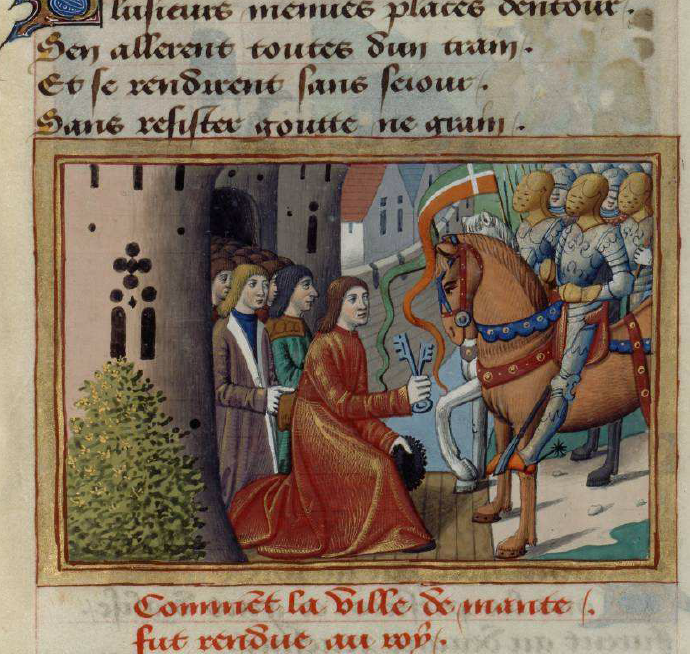 Plusieurs menues places dentour.
Sen allerent toutes dun train.
Et se rendirent sans seiour.
Sans resister goutte ne grain.
Comment la ville de mante
fut rendue au roy.